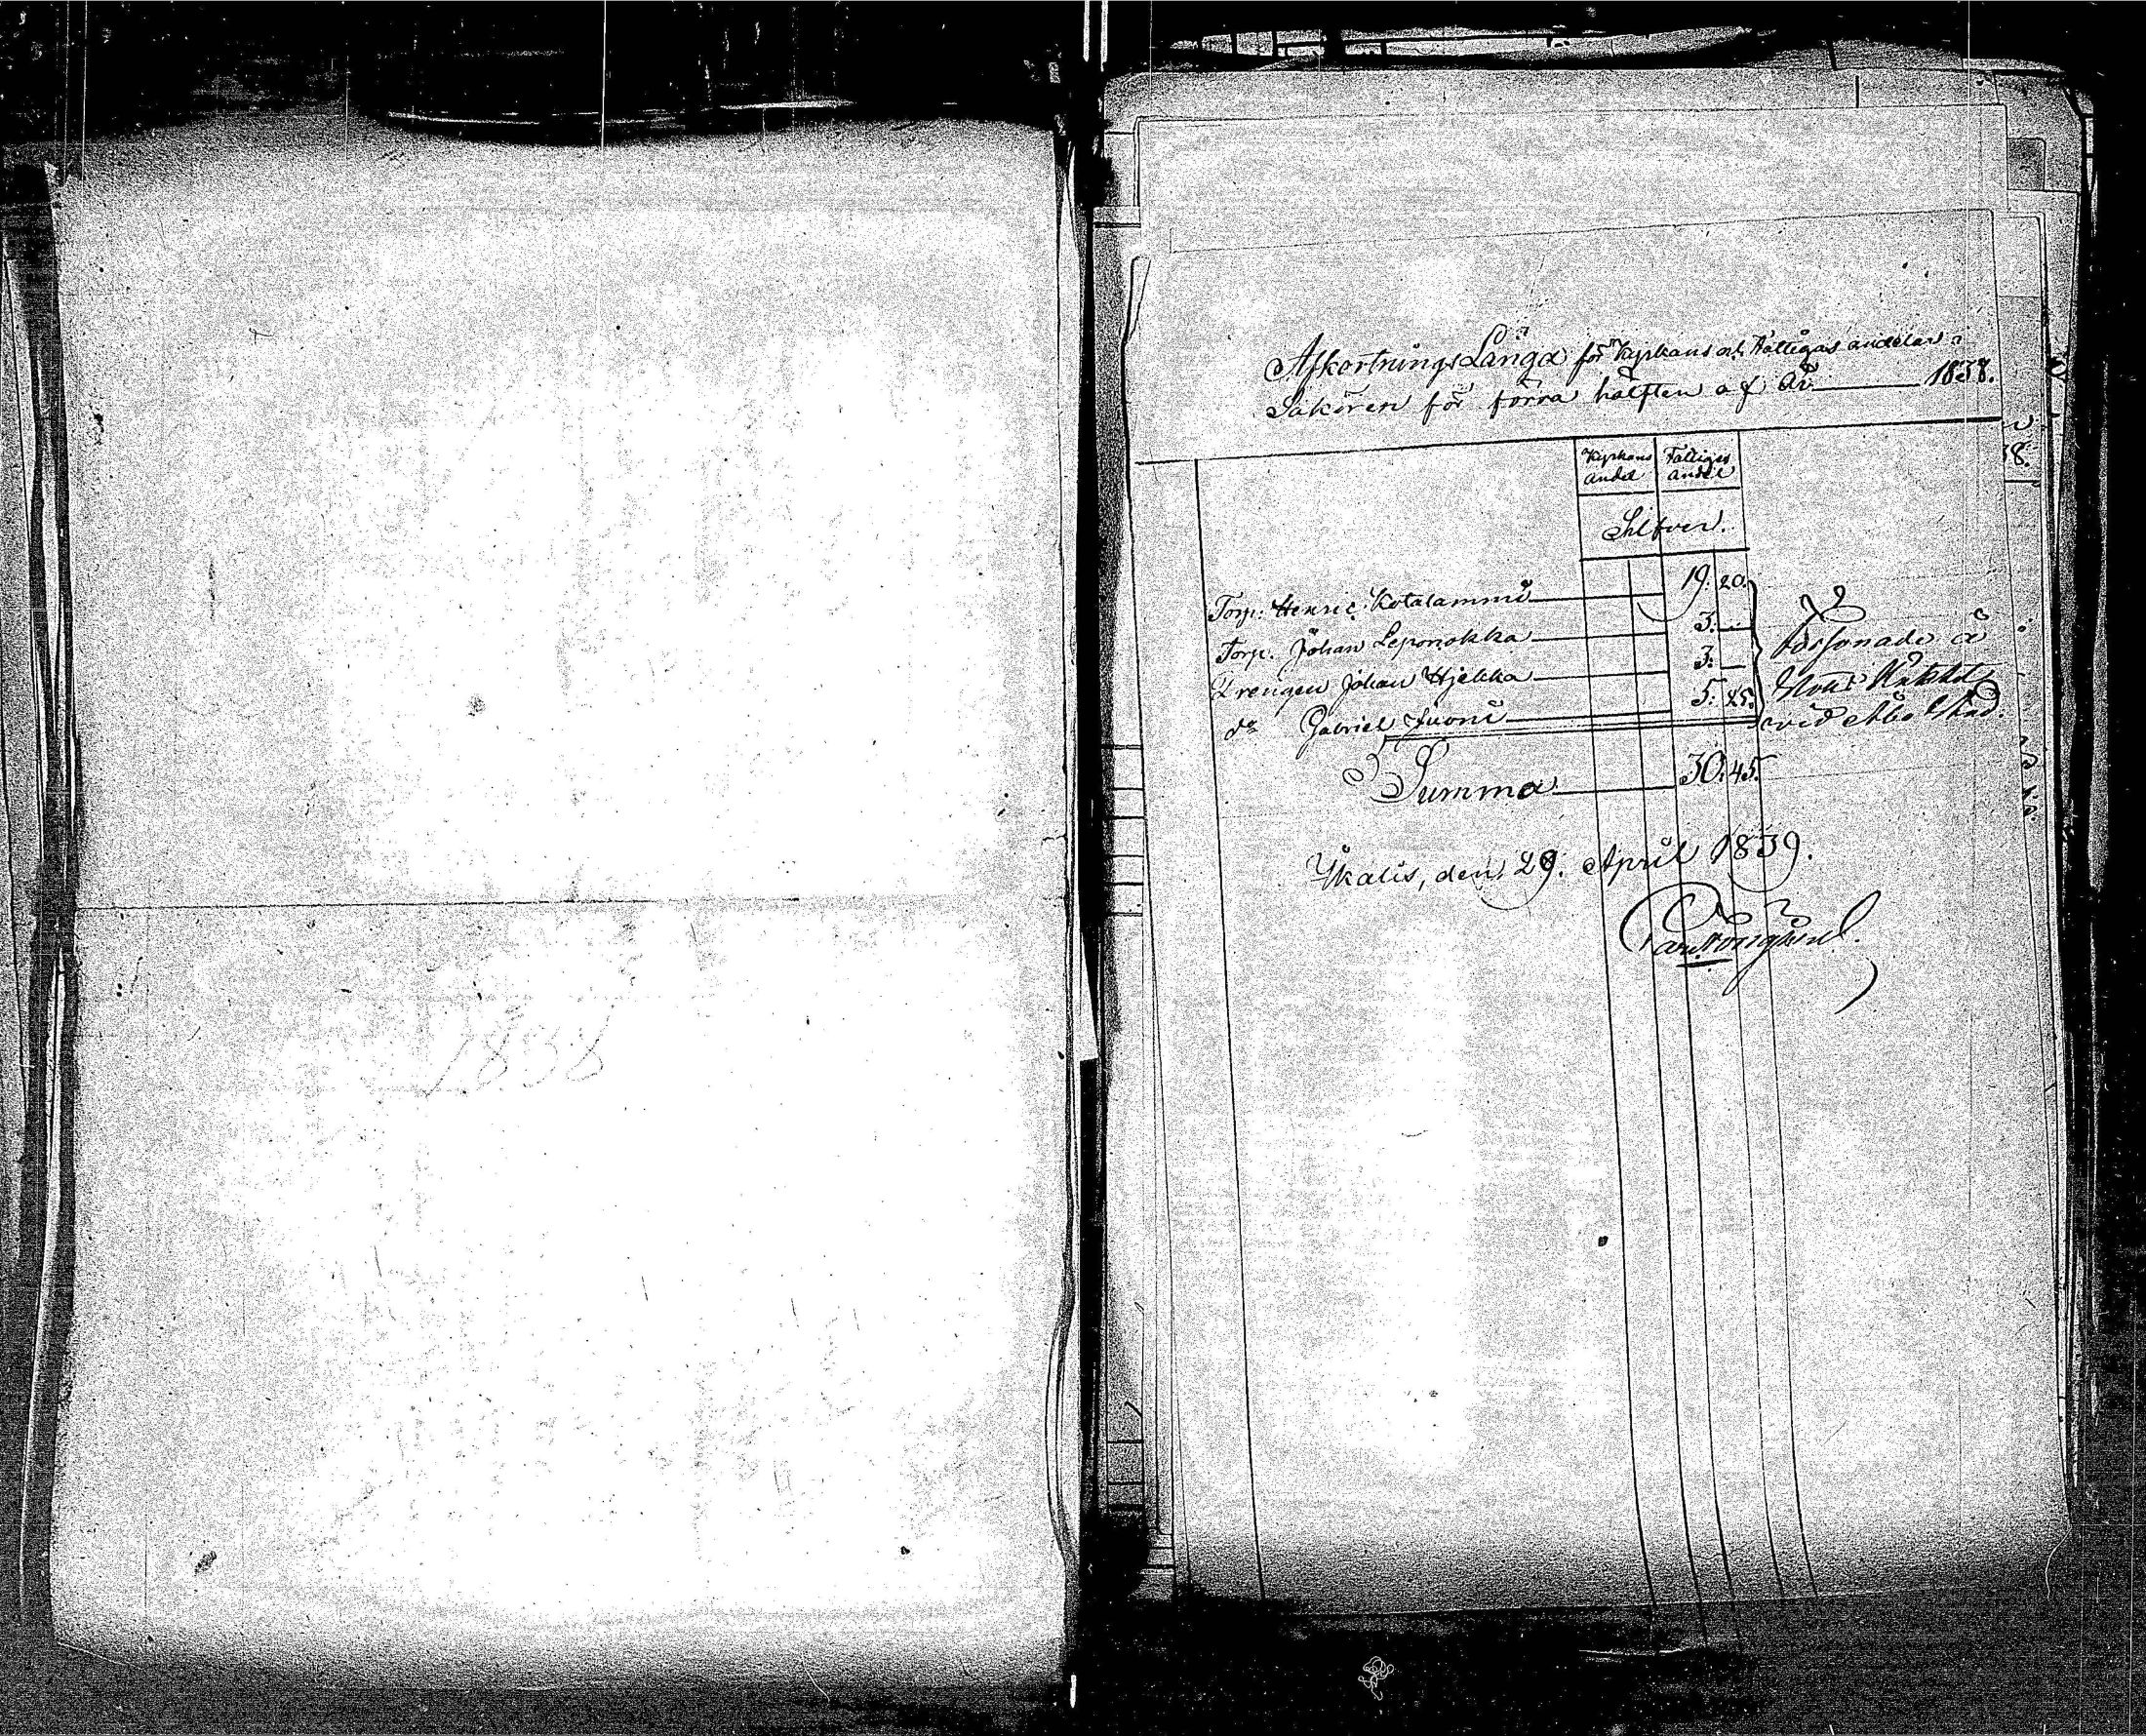 1838
Afkortnings Längd för Kyrkans och Fattigas andelar i
Saköron för förra hälften af År 1838.
Kyrkans Fattiges
andel andel
Silfver.
Torp. Henric Kotalammi 19. 20.
Torp. Johan Leponokka 3. —
Drengen Johan Hjekka 3. —
do Gabriel Juoni 5. 25.
å
vid Åbo Stad.
Summa 30. 45.
Ikalis, den 29. April 1839.